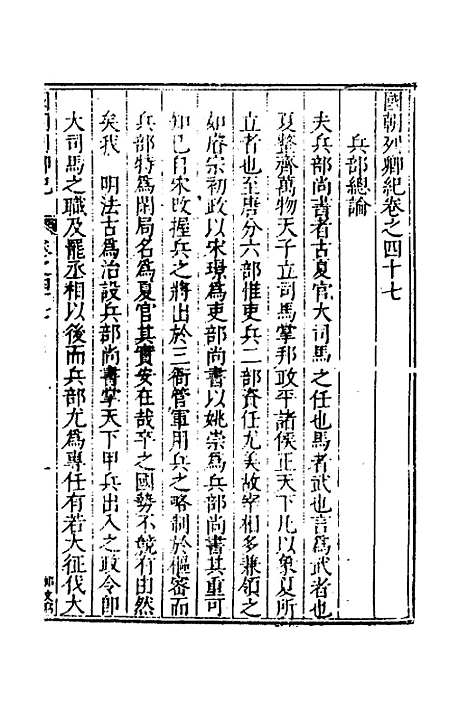 國朝列卿紀卷之四十七
兵部總論
夫兵部尚書者古夏官大司馬之任也馬者武也言爲武者也
夏整齊萬物天子立司馬掌邦政平諸侯正天下凡以象夏所
立者也至唐分六部惟吏兵二部資任尤美故宰相多兼領之
如唐宗初政以宋璟爲吏部尚書以姚崇爲兵部尚書其重可
知已自宋改握兵之將出於三衙管軍用兵之略制於樞密而
兵部特爲閑局名爲夏官其實安在哉卒之國勢不競有由然
矣我 明法古爲治設兵部尚書掌天下甲兵出入之政令卽
大司馬之職及罷丞相以後而兵部尤爲專任有若大征伐大